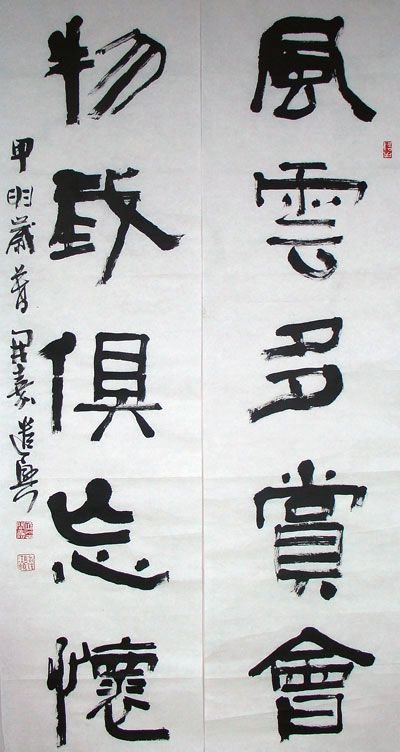 風雲多賞會
物我俱忘懷
甲 歲 遣興